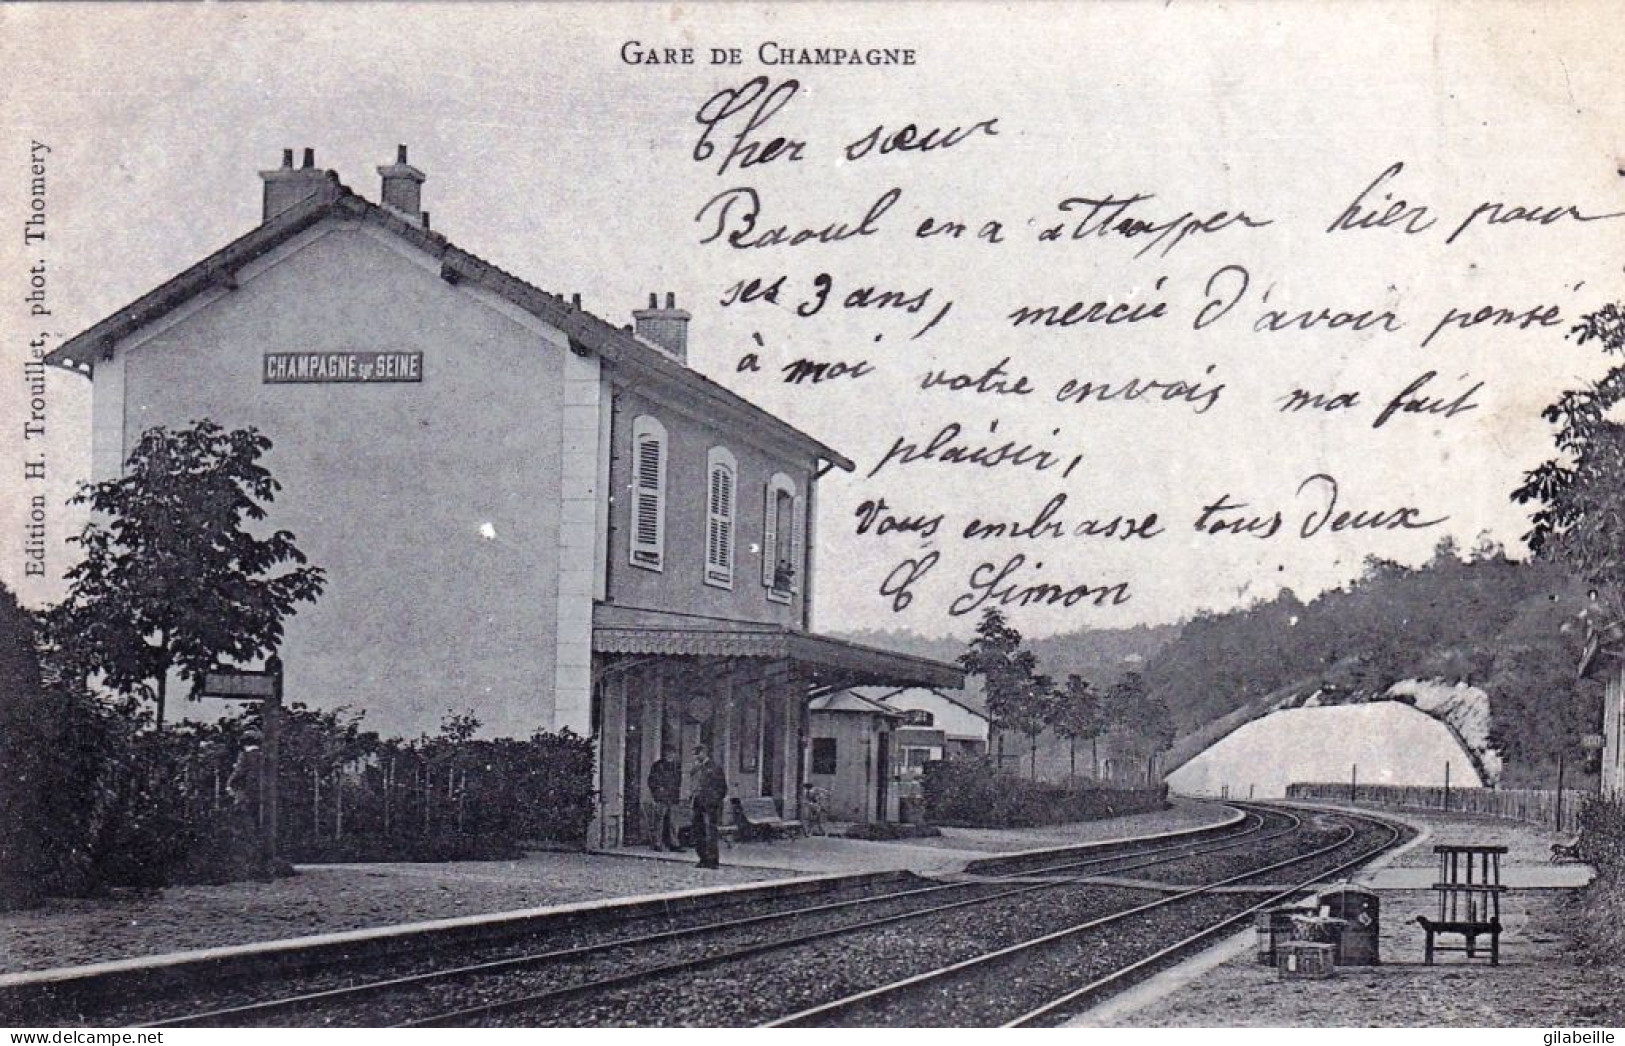 GARE DE CHAMPAGNE
Cher sœur
Raoul en a attrapper hier pour
ses 3 ans, mercie d'avoir pensé
à moi votre envois ma fait
plaisir,
Vous embrasse tous deux
C Simon
CHAMPAGNE sur SEINE
Edition H. Trouillet, phot. Thomery
gilabeille